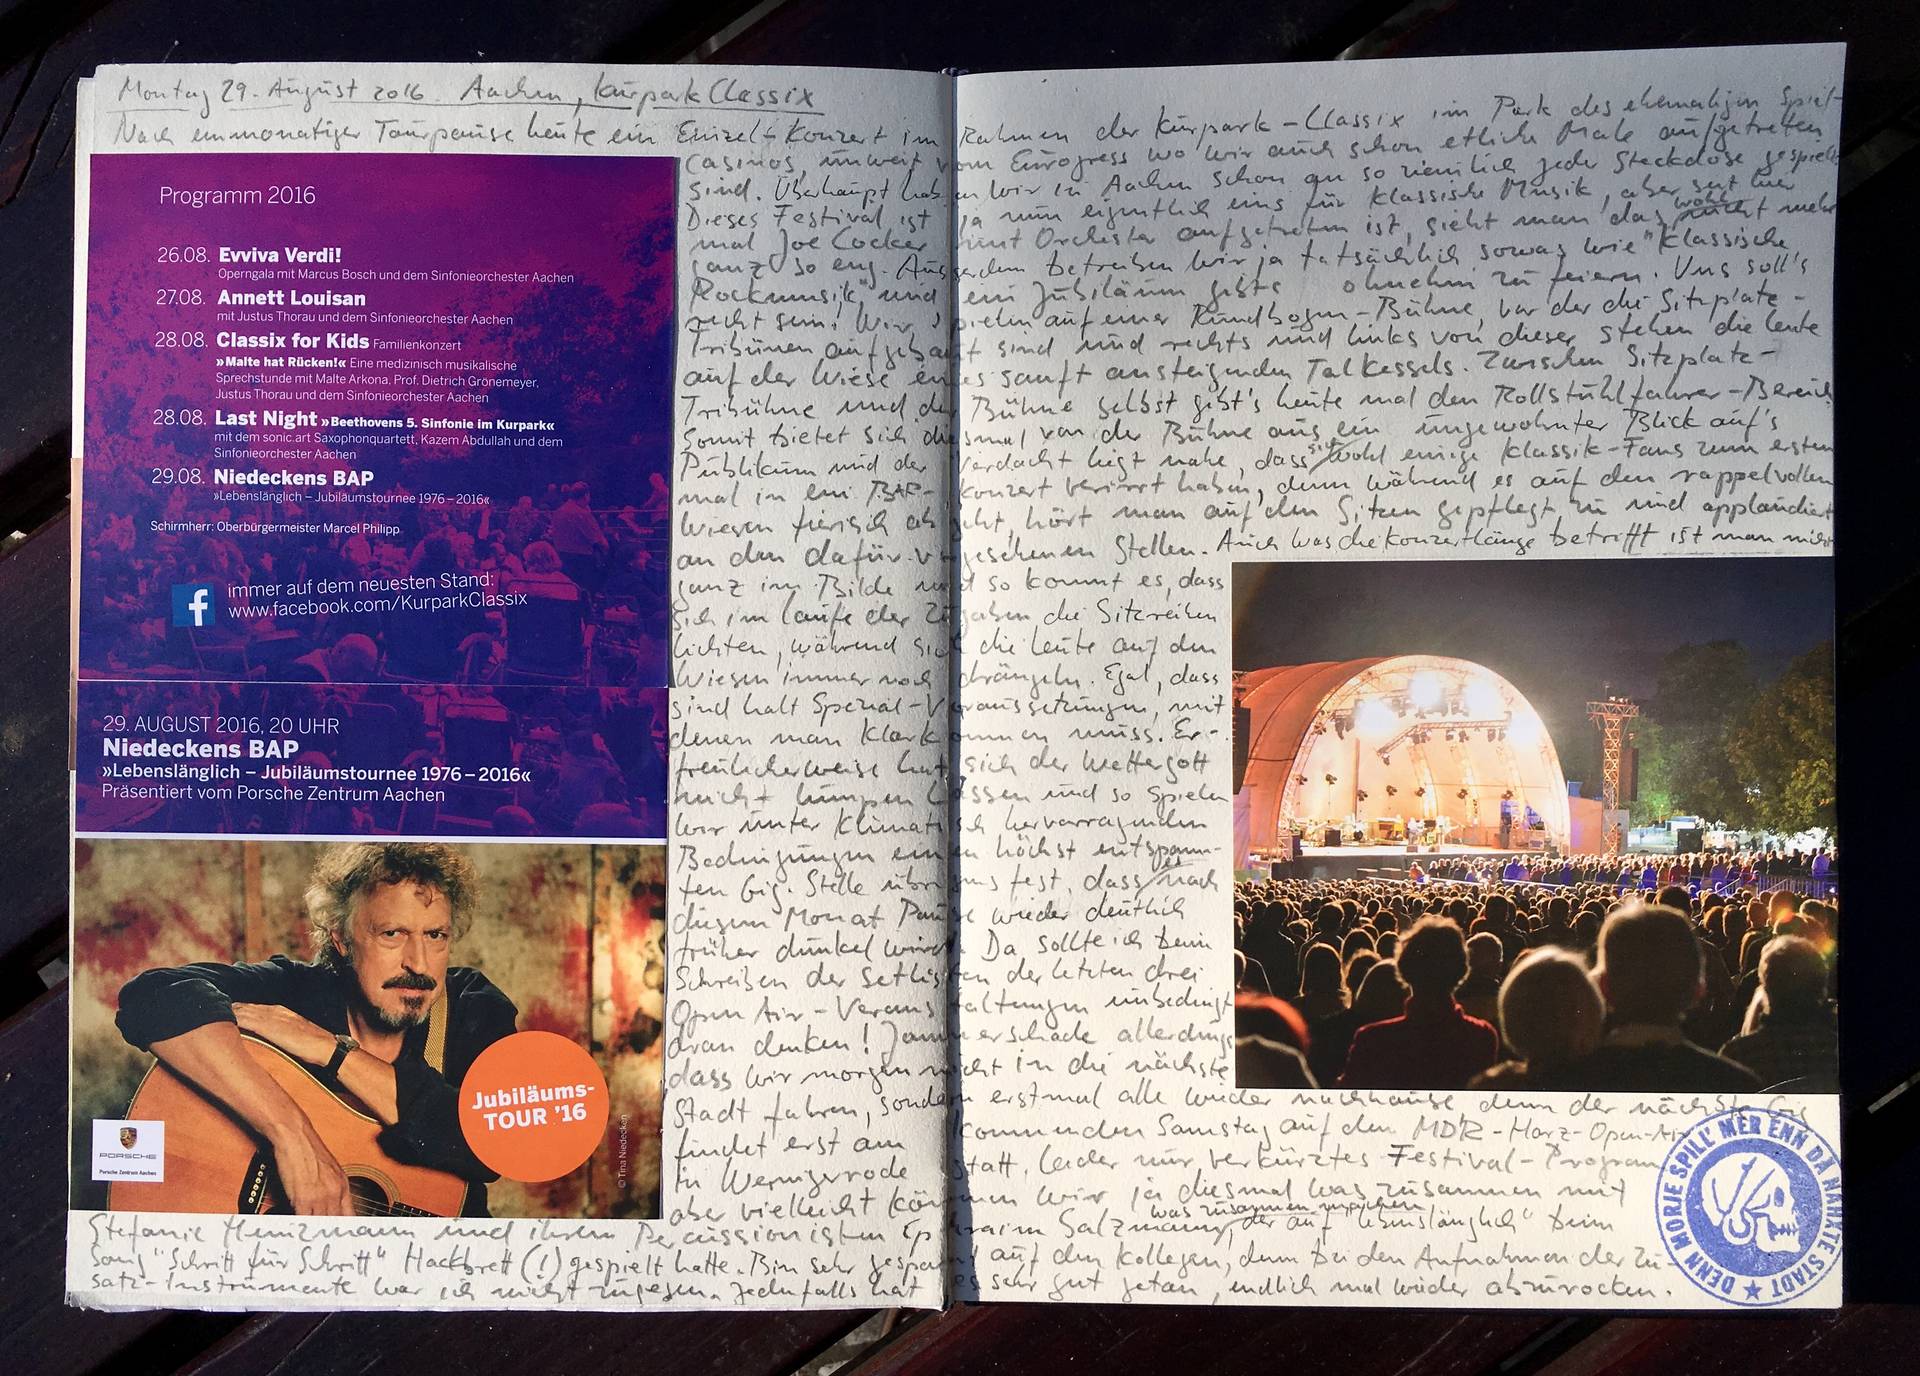 Montag 29. August 2016. Aachen, KurparkClassix
Nach einmonatiger Tourpause heute ein Einzel-Konzert im Rahmen der Kurpark-Classix im Park des ehemaligen Spiel-
casinos, unweit vom Eurogress wo wir auch schon etliche Male aufgetreten
sind. Überhaupt haben wir in Aachen schon an so ziemlich jeder Steckdose gespielt
Dieses Festival ist ja nun eigentlich eins für klassische Musik, aber seit hier
mal Joe Cocker mit Orchester aufgetreten ist, sieht man das wohl nicht mehr
ganz so eng. Ausserdem betreiben wir ja tatsächlich sowas wie "klassische
Rockmusik" und ein Jubiläum gibts ohnehin zu feiern. Uns soll's
recht sein! Wir spielen auf einer Rundbogen-Bühne, vor der die Sitzplatz-
Tribünen aufgebaut sind und rechts und links von dieser stehen die Leute
auf der Wiese eines sanft ansteigenden Talkessels. Zwischen Sitzplatz-
Tribühne und der Bühne selbst gibt's heute mal den Rollstuhlfahrer-Bereich
Somit bietet sich diesmal von der Bühne aus ein ungewohnter Blick auf's
Publikum und der Verdacht liegt nahe, dass sich wohl einige Klassik-Fans zum ersten
mal in ein BAP-Konzert verirrt haben, denn während es auf den rappelvollen
Wiesen tierisch abgeht, hört man auf den Sitzen gepflegt zu und applaudiert
an den dafür vorgesehenen Stellen. Auch was die Konzertlänge betrifft ist man nicht
ganz im Bilde und so kommt es, dass
sich im Laufe der Zugaben die Sitzreihen
lichten, während sich die Leute auf den
Wiesen immer noch drängeln. Egal, dass
sind halt Spezial-Voraussetzungen, mit
denen man klarkommen muss. Er-
freulicherweise hat sich der Wettergott
nicht lumpen lassen und so spielen
wir unter klimatisch hervorragenden
Bedingungen einen höchst entspann-
ten Gig. Stelle übrigens fest, dass es nach
diesem Monat Pause wieder deutlich
früher dunkel wird. Da sollte ich beim
Schreiben der Setlisten der letzten drei
Open Air-Veranstaltungen unbedingt
dran denken! Jammerschade allerdings
dass wir morgen nicht in die nächste
Stadt fahren, sondern erstmal alle wieder nachhause denn der nächste Gig
findet erst am kommenden Samstag auf dem MDR-Harz-Open-Air
in Wernigerode statt, leider nur verkürztes Festival-Program
aber vielleicht können wir ja diesmal was zusammen mit
Stefanie Heinzmann und ihrem Percussionisten Ephraim Salzmann was zusammen machen, der auf "Lebenslänglich" beim
Song "Schritt für Schritt" Hackbrett (!) gespielt hatte. Bin sehr gespannt auf den Kollegen, denn bei den Aufnahmen der Zu-
satz-Instrumente war ich nicht zugegen. Jedenfalls hat es sehr gut getan, endlich mal wieder abzurocken.
Programm 2016
26.08. Evviva Verdi!
Operngala mit Marcus Bosch und dem Sinfonieorchester Aachen
27.08. Annett Louisan
mit Justus Thorau und dem Sinfonieorchester Aachen
28.08. Classix for Kids Familienkonzert
»Malte hat Rücken!« Eine medizinisch musikalische
Sprechstunde mit Malte Arkona, Prof. Dietrich Grönemeyer,
Justus Thorau und dem Sinfonieorchester Aachen
28.08. Last Night »Beethovens 5. Sinfonie im Kurpark«
mit dem sonic.art Saxophonquartett, Kazem Abdullah und dem
Sinfonieorchester Aachen
29.08. Niedeckens BAP
»Lebenslänglich – Jubiläumstournee 1976 – 2016«
Schirmherr: Oberbürgermeister Marcel Philipp
f
immer auf dem neuesten Stand:
www.facebook.com/KurparkClassix
29. AUGUST 2016, 20 UHR
Niedeckens BAP
»Lebenslänglich – Jubiläumstournee 1976 – 2016«
Präsentiert vom Porsche Zentrum Aachen
Jubiläums-
TOUR '16
PORSCHE
Porsche Zentrum Aachen
© Tina Niedecken
DENN MORJE SPILL' MER ENN DÄ NÄHXTE STADT